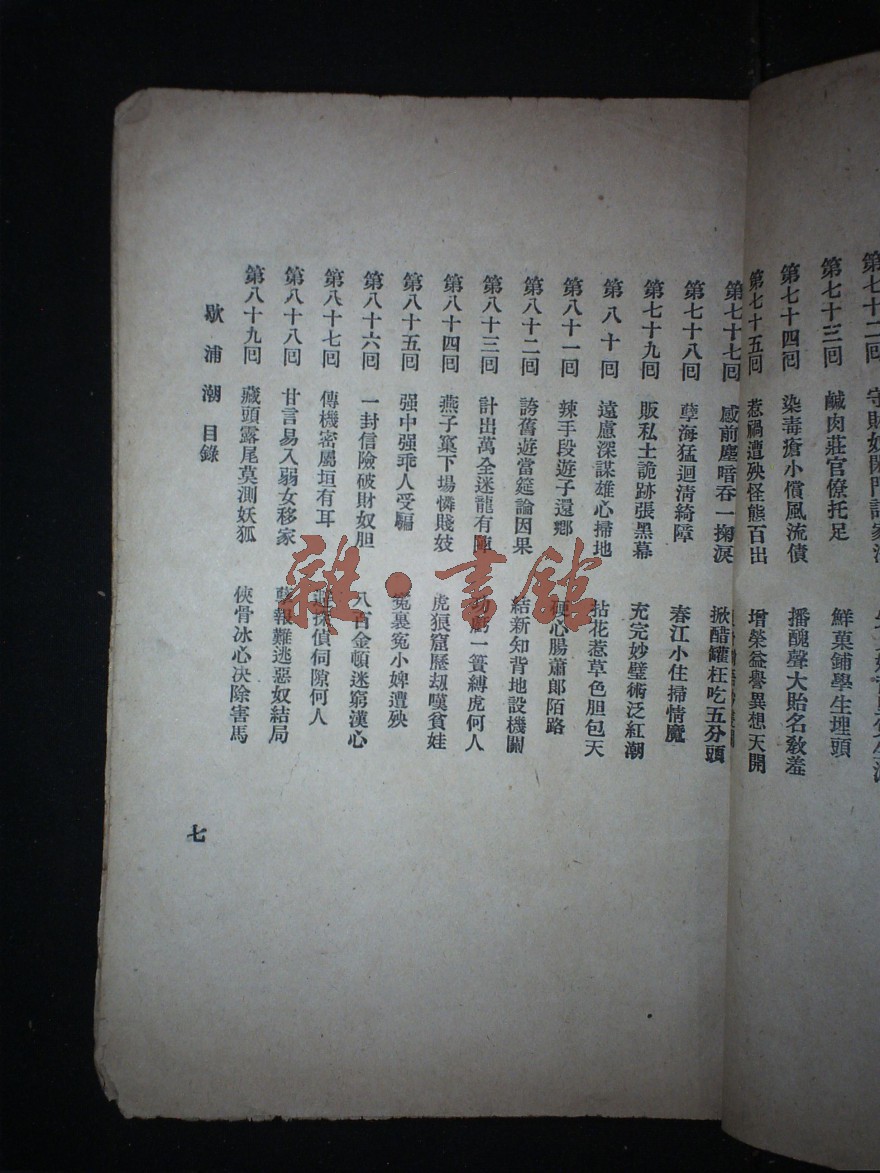 第七十二回
第七十三回 鹹肉莊官僚托足 鮮菓鋪學生埋頭
第七十四回 染毒瘡小償風流債 播醜聲大貽名教羞
第七十五回 惹禍遭殃怪態百出 增榮益譽異想天開
第七十七回 感前塵暗吞一掬淚 掀醋罐枉吃五分頭
第七十八回 孽海猛迴淸綺障 春江小住掃情魔
第七十九回 販私土詭跡張黑幕 充完妙璧術泛紅潮
第八十回 遠慮深謀雄心掃地 拈花惹草色胆包天
第八十一回 辣手段遊子還鄉 硬心腸蕭郞陌路
第八十二回 誇舊遊當筵論因果 結新知背地設機關
第八十三回 計出萬全迷龍有陣 功虧一簣縛虎何人
第八十四回 燕子窠下場憐賤妓 虎狼窟歷劫嘆貧娃
第八十五回 强中强乖人受騙 寃裏寃小婢遭殃
第八十六回 一封信險破財奴胆 八百金頓迷窮漢心
第八十七回 傳機密屬垣有耳 探偵伺隙何人
第八十八回 甘言易入弱女移家 孽報難逃惡奴結局
第八十九回 藏頭露尾莫測妖狐 俠骨冰心決除害馬
歇浦潮 目錄
七
雜·書館